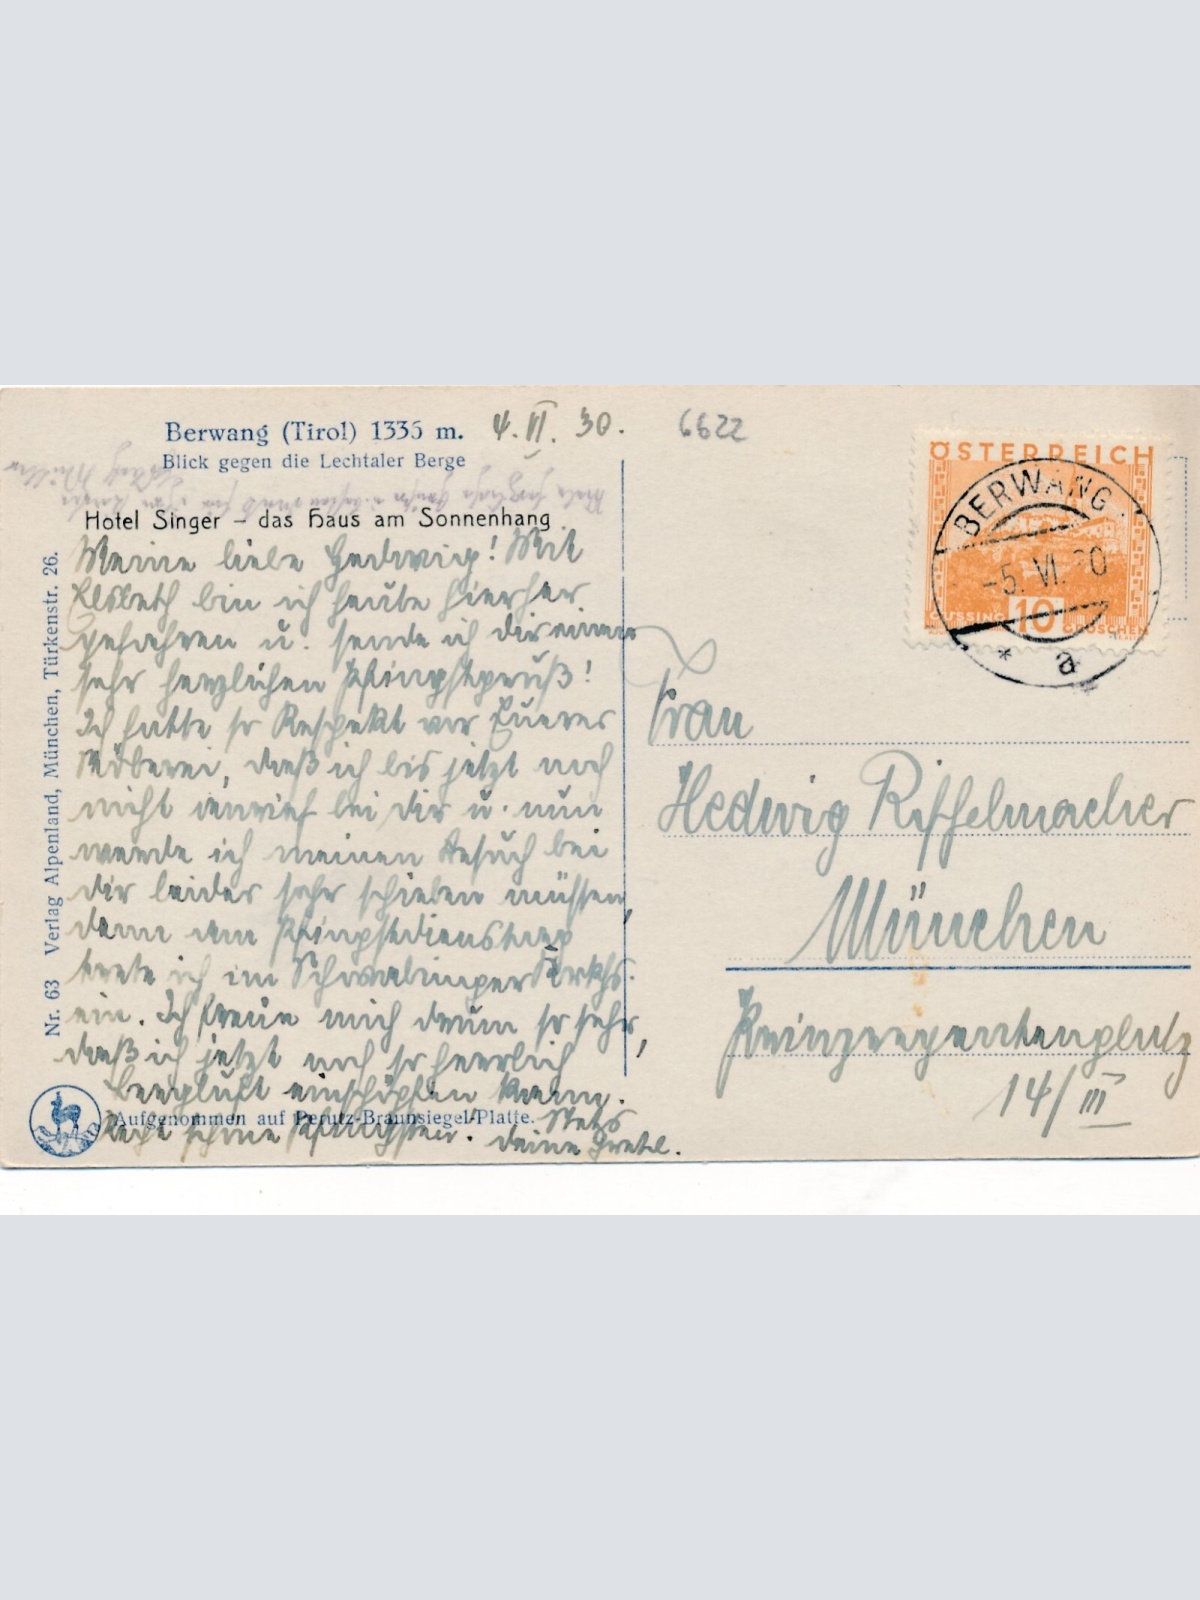 Berwang (Tirol) 1335 m. 4. VI. 30. 6622
Blick gegen die Lechtaler Berge
Hotel Singer – das Haus am Sonnenhang
Meine liebe Hedwig! Mit
Elsbeth bin ich heute hierher
gefahren u. sende ich dir einen
sehr herzlichen Pfingstgruß!
Ich hatte so Respekt vor Euerer
Stöberei, daß ich bis jetzt noch
nicht anrief bei dir u. nun
werde ich meinen Besuch bei
dir leider sehr schieben müssen,
denn am Pfingstdienstag
trete ich im Schwabinger Krkhs.
ein. Ich freue mich drum so sehr,
daß ich jetzt noch so herrlich
Bergluft einschöpfen kann.
Recht schöne Pfingsten! Stets
deine Gretel.
Aufgenommen auf Perutz-Braunsiegel-Platte.
Nr. 63 Verlag Alpenland, München, Türkenstr. 26.
ÖSTERREICH
GÜSSING 10 GROSCHEN
BERWANG
-5. VI. 30
* a *
Frau
Hedwig Riffelmacher
München
Prinzregentenplatz
14/III